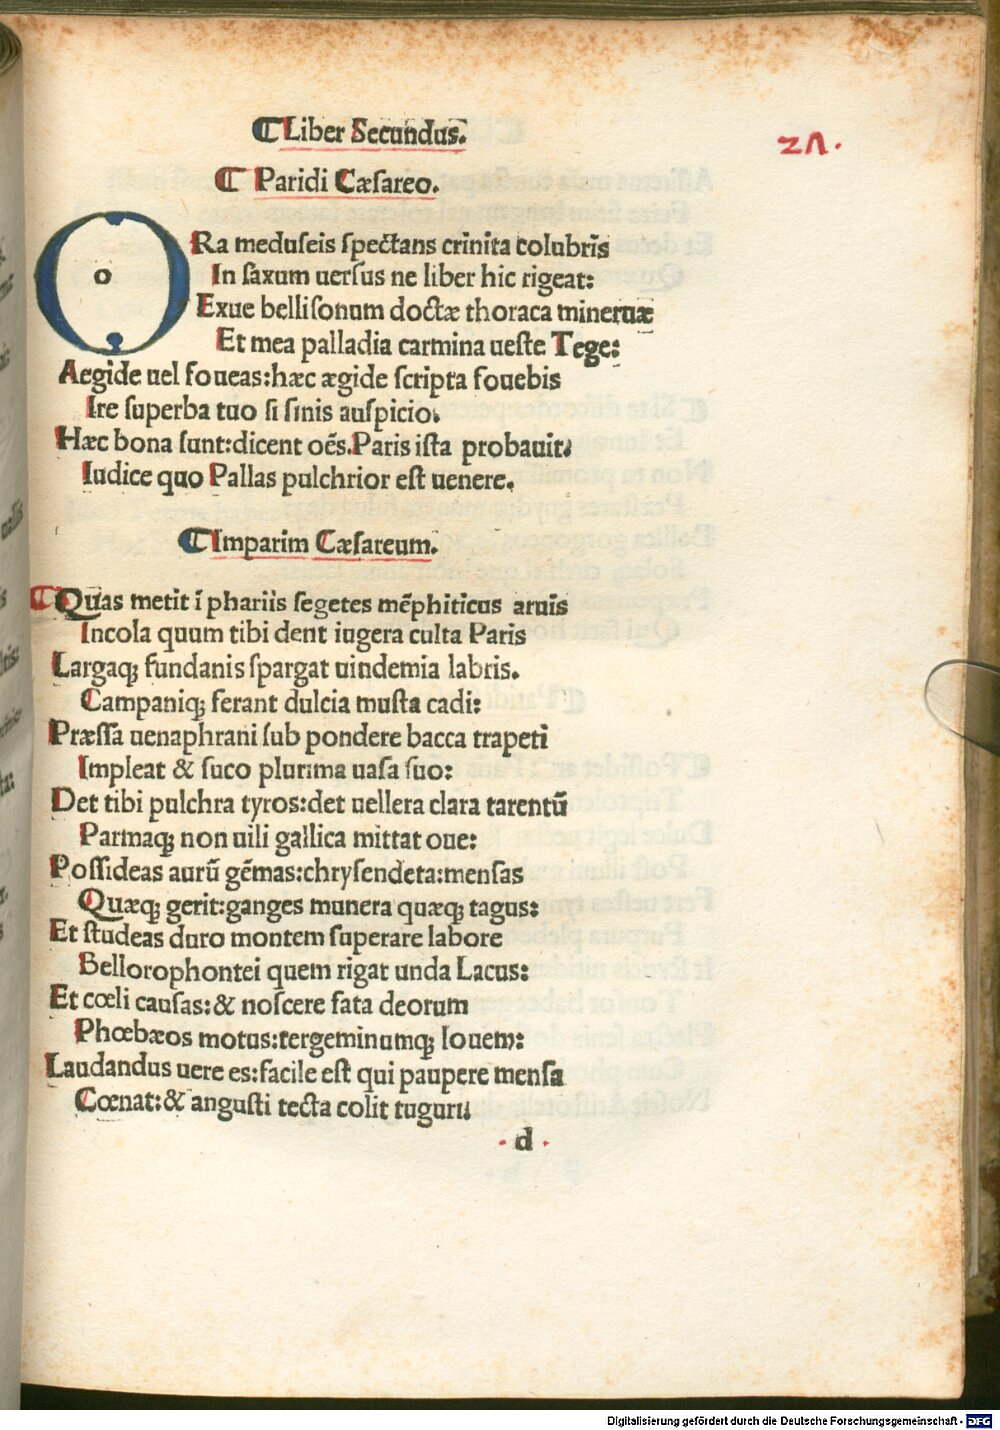 ¶ Liber Secundus.
21.
¶ Paridi Cæsareo.
ORa meduseis spectans crinita colubris
In saxum uersus ne liber hic rigeat:
Exue bellisonum doctæ thoraca mineruæ
Et mea palladia carmina ueste Tege:
Aegide uel foueas:hæc ægide scripta fouebis
Ire superba tuo si sinis auspicio.
Hæc bona sunt:dicent oẽs.Paris ista probauit.
Iudice quo Pallas pulchrior est uenere.
¶ Imparim Cæsareum.
¶ Quas metit ĩ phariis segetes mẽphiticus aruis
Incola quum tibi dent iugera culta Paris
Largaqꝫ fundanis spargat uindemia labris.
Campaniqꝫ ferant dulcia musta cadi:
Præssa uenaphrani sub pondere bacca trapeti
Impleat & suco plurima uasa suo:
Det tibi pulchra tyros:det uellera clara tarentũ
Parmaqꝫ non uili gallica mittat oue:
Possideas aurũ gẽmas:chrysendeta:mensas
Quæqꝫ gerit:ganges munera quæqꝫ tagus:
Et studeas duro montem superare labore
Bellorophontei quem rigat unda Lacus:
Et cœli causas:& noscere fata deorum
Phœbæos motus:tergeminumqꝫ Iouem:
Laudandus uere es:facile est qui paupere mensa
Cœnat:& angusti tecta colit tugurii
.d.
Digitalisierung gefördert durch die Deutsche Forschungsgemeinschaft - DFG